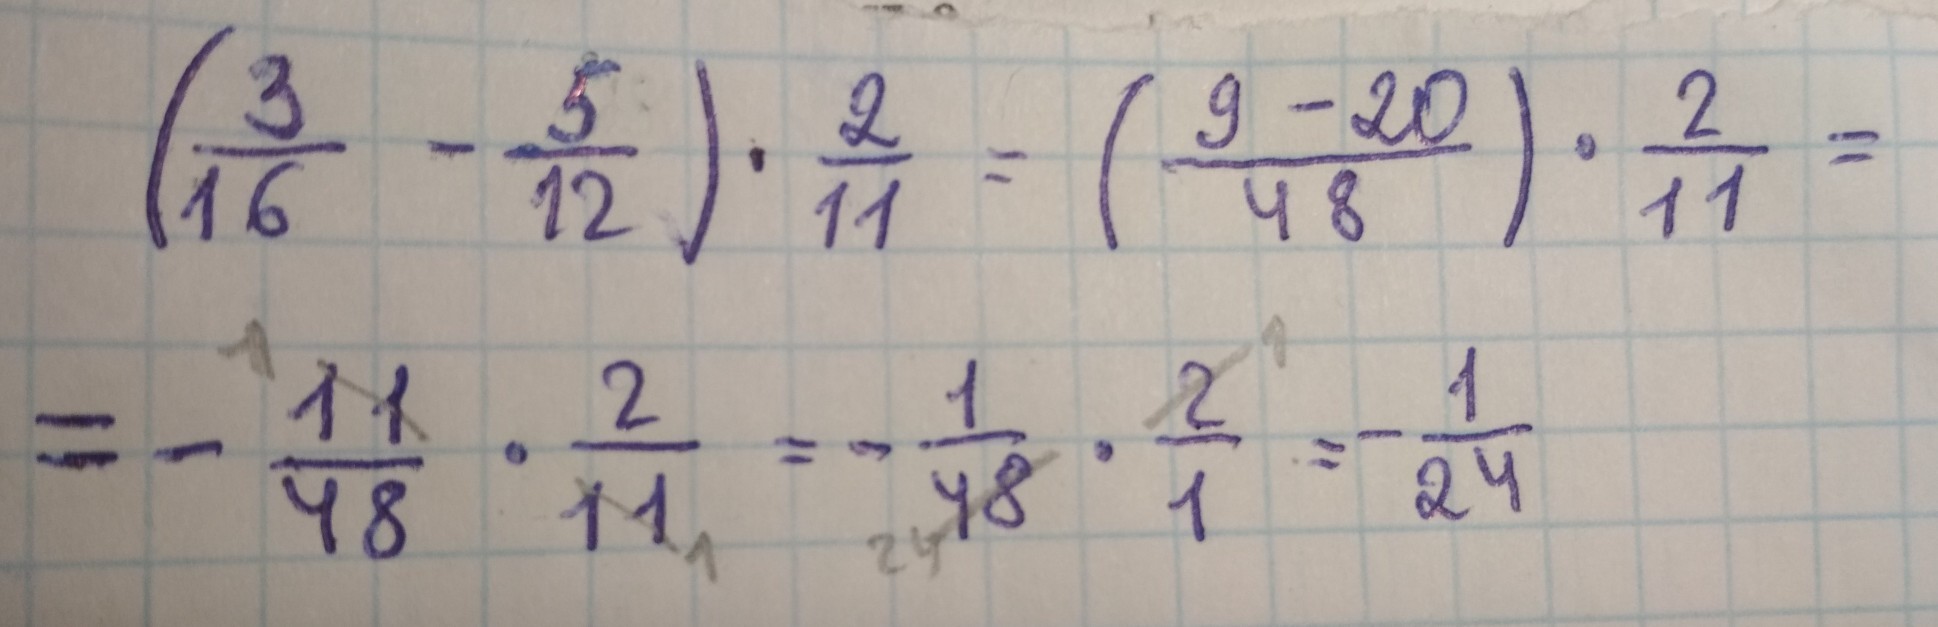 (3/16 - 5/12) · 2/11 = (9 - 20/48) · 2/11 =
= - 1 11/48 · 2/11 1 = - 1/48 24 · 2/1 1 = - 1/24